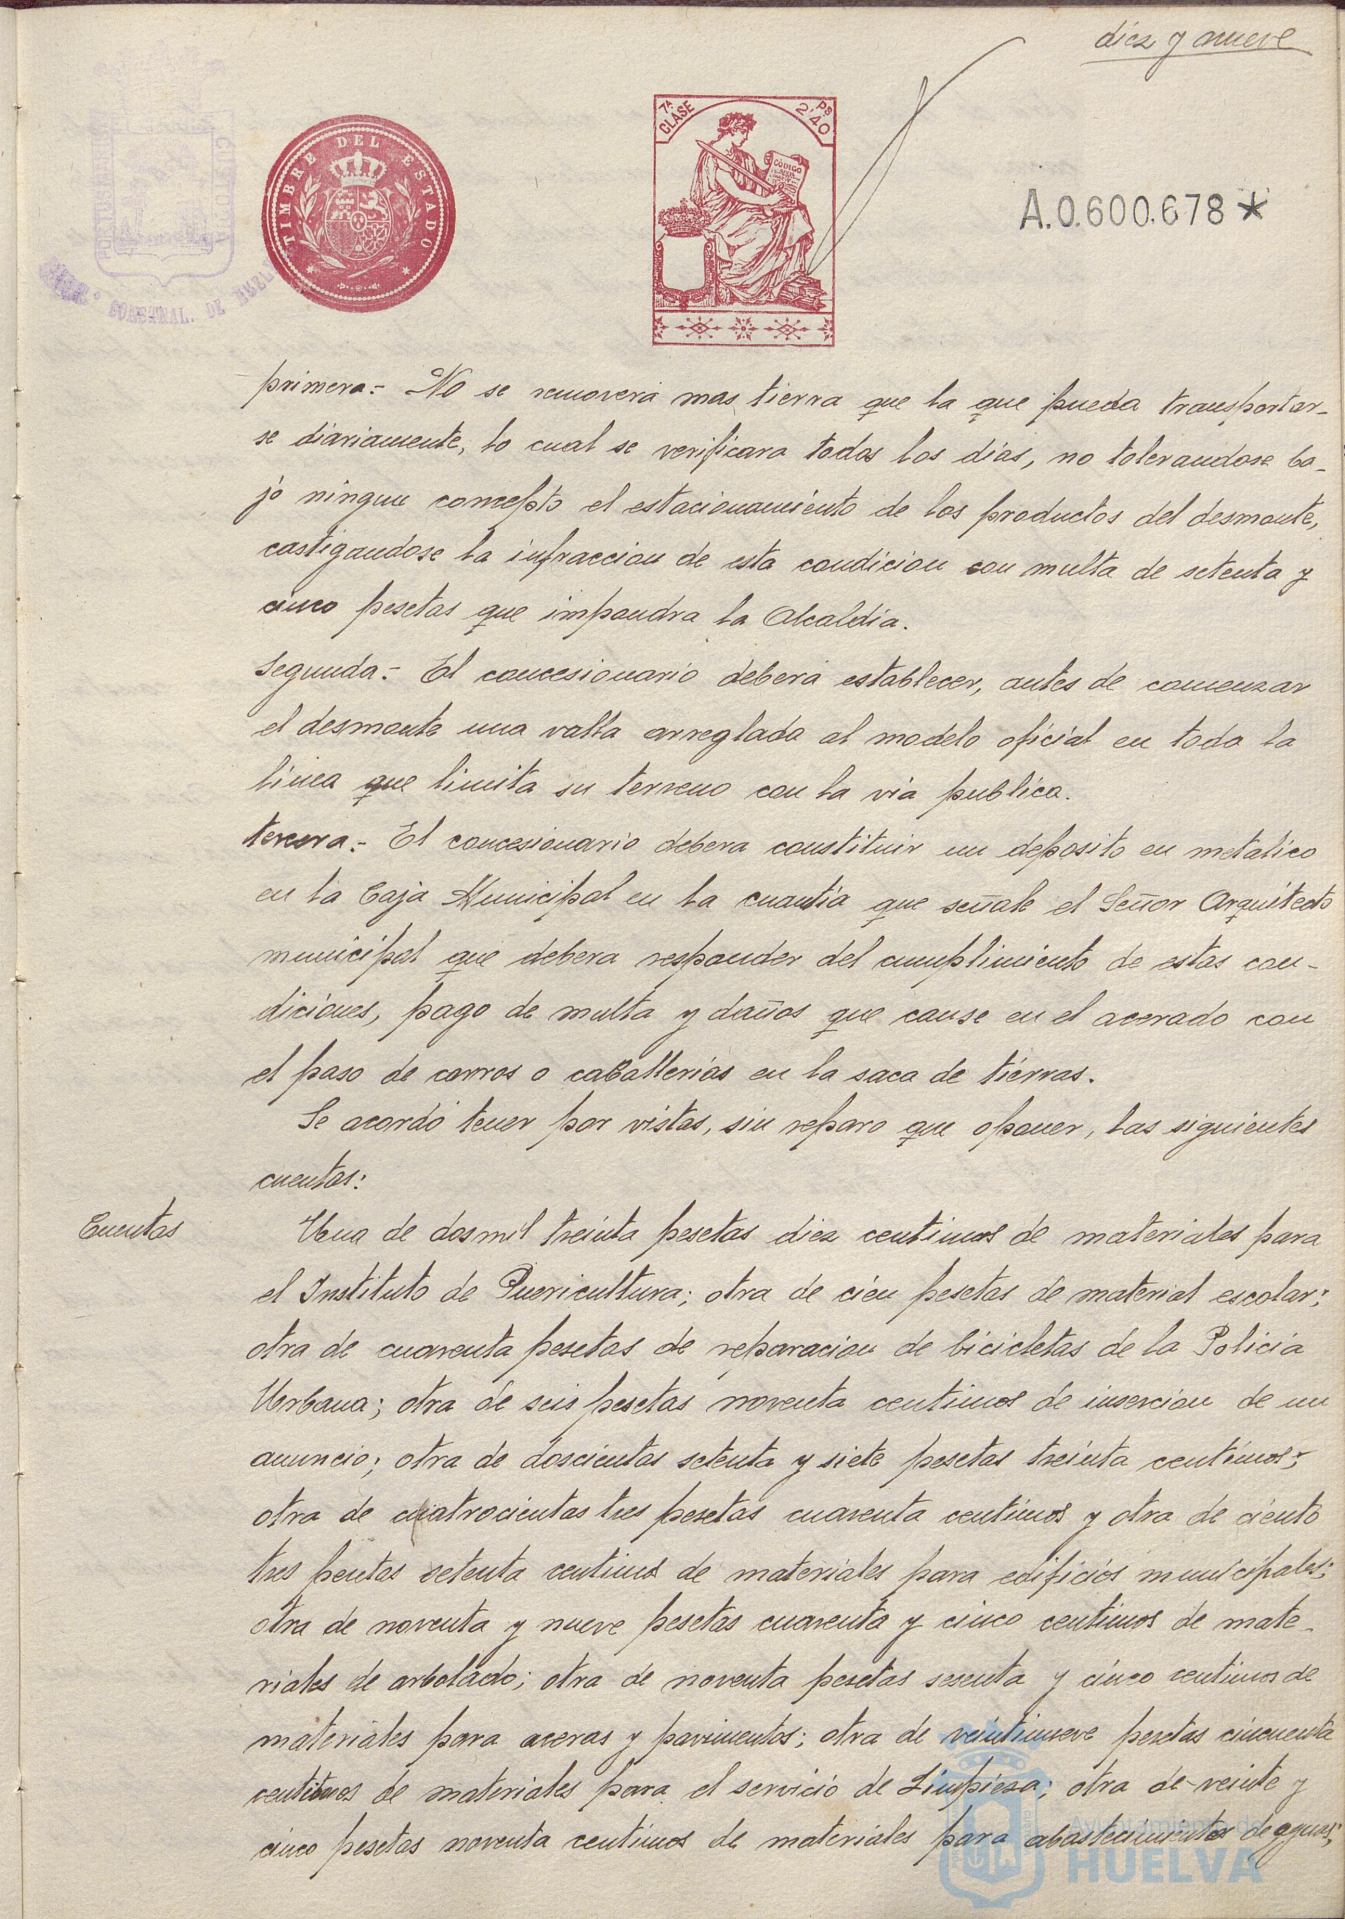 diez y nueve
TIMBRE DEL ESTADO
7ª CLASE
2'40 Ps
CÓDIGO
A.0.600.678*
primera.- No se removera mas tierra que la que pueda transportar-
se diariamente, lo cual se verificara todos los dias, no tolerandose ba-
jo ningun concepto el estacionamiento de los productos del desmonte,
castigandose la infraccion de esta condicion con multa de setenta y
cinco pesetas que impondra la Alcaldia.
Segunda.- El concesionario debera establecer, antes de comenzar
el desmonte una valla arreglada al modelo oficial en toda la
linea que limita su terreno con la via publica.
tercera.- El concesionario debera constituir un deposito en metalico
en la Caja Municipal en la cuantia que señale el Señor Arquitecto
municipal que debera responder del cumplimiento de estas con-
diciones, pago de multa y daños que cause en el acerado con
el paso de carros o caballerias en la saca de tierras.
Se acordó tener por vistas, sin reparo que oponer, las siguientes
cuentas:
Cuentas
Una de dos mil treinta pesetas diez centimos de materiales para
el Instituto de Puericultura; otra de cien pesetas de material escolar;
otra de cuarenta pesetas de reparacion de bicicletas de la Policia
Urbana; otra de seis pesetas noventa centimos de insercion de un
anuncio; otra de doscientas setenta y siete pesetas treinta centimos;
otra de cuatrocientas tres pesetas cuarenta centimos y otra de ciento
tres pesetas setenta centimos de materiales para edificios municipales;
otra de noventa y nueve pesetas cuarenta y cinco centimos de mate-
riales de arbolado; otra de noventa pesetas sesenta y cinco centimos de
materiales para aceras y pavimentos; otra de veintinueve pesetas cincuenta
centimos de materiales para el servicio de Limpieza; otra de veinte y
cinco pesetas noventa centimos de materiales para abastecimiento de aguas;
Ayuntamiento de
HUELVA